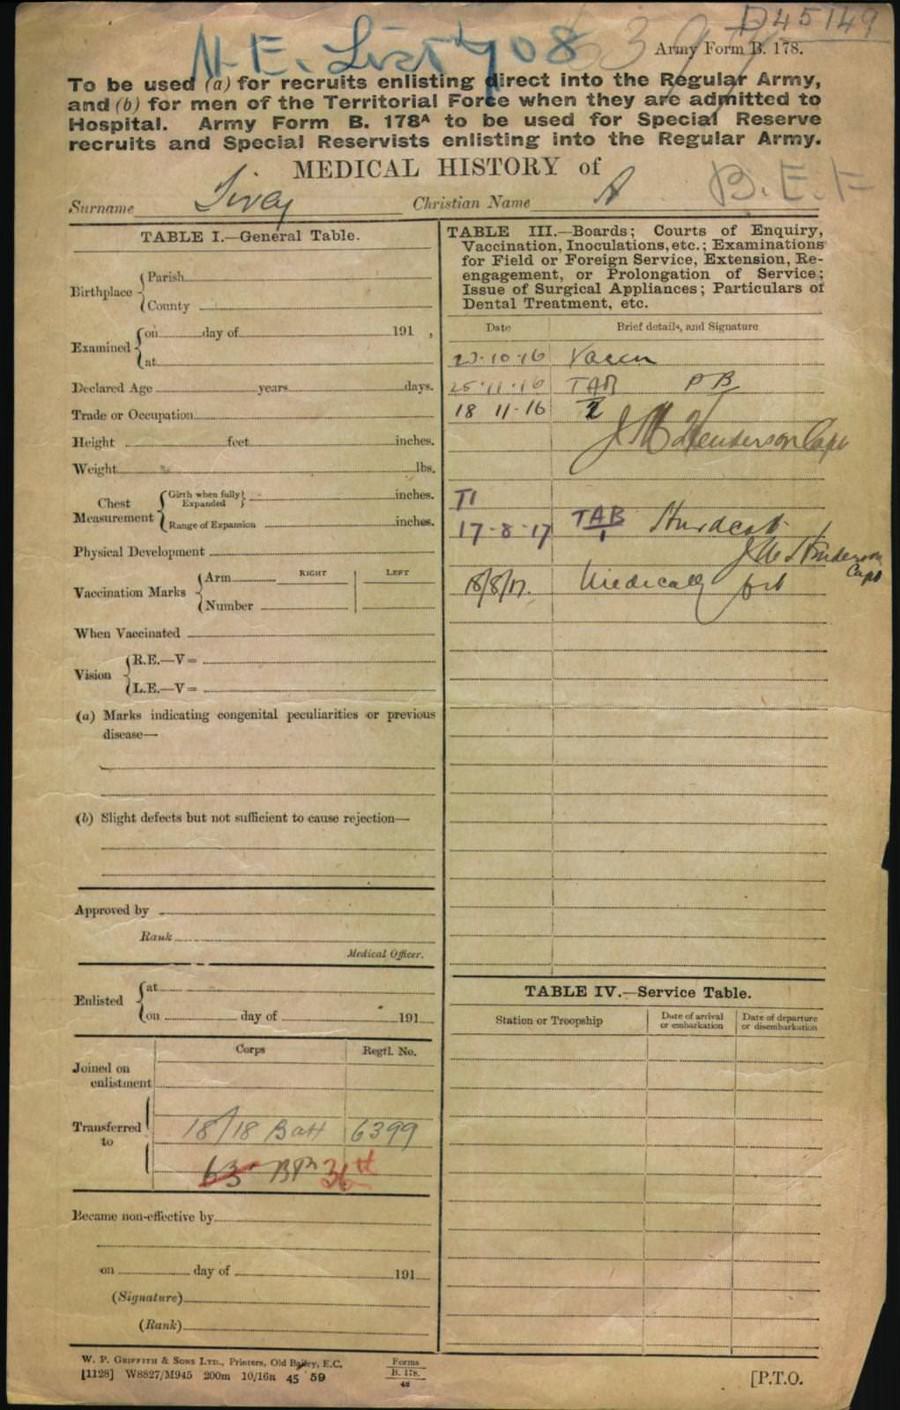 D45149
N.E. List 908
Army Form B. 178.
To be used (a) for recruits enlisting direct into the Regular Army,
and (b) for men of the Territorial Force when they are admitted to
Hospital. Army Form B. 178A to be used for Special Reserve
recruits and Special Reservists enlisting into the Regular Army.
MEDICAL HISTORY of
B.E.F
Surname Christian Name A
TABLE I.—General Table.
Birthplace
Parish
County
Examined
on day of 191 ,
at
Declared Age years days.
Trade or Occupation
Height feet inches.
Weight lbs.
Chest Measurement
Girth when fully Expanded inches.
Range of Expansion inches.
Physical Development
RIGHT LEFT
Vaccination Marks
Arm
Number
When Vaccinated
Vision
R.E.—V=
L.E.—V=
(a) Marks indicating congenital peculiarities or previous
disease—
(b) Slight defects but not sufficient to cause rejection—
Approved by
Rank
Medical Officer.
Enlisted
at
on day of 191
Corps Regtl. No.
Joined on
enlistment
Transferred
to
18/18 Batt 6399
63 Bn 36th
Became non-effective by
on day of 191
(Signature)
(Rank)
TABLE III.—Boards; Courts of Enquiry,
Vaccination, Inoculations, etc.; Examinations
for Field or Foreign Service, Extension, Re-
engagement, or Prolongation of Service;
Issue of Surgical Appliances; Particulars of
Dental Treatment, etc.
Date Brief details, and Signature
10.16 Vaccn
25.11.16 TAB PB
18 11-16 2
Henderson Capt
T1
17-8-17 TAB 1 Hurdcott
Henderson
Capt
18/8/17. Medically fit
TABLE IV.—Service Table.
Station or Troopship
Date of arrival
or embarkation
Date of departure
or disembarkation
W. P. GRIFFITH & SONS LTD., Printers, Old Bailey, E.C.
[1128] W8827/M945 200m 10/16n 45 59
Forms
B. 178.
[P.T.O.